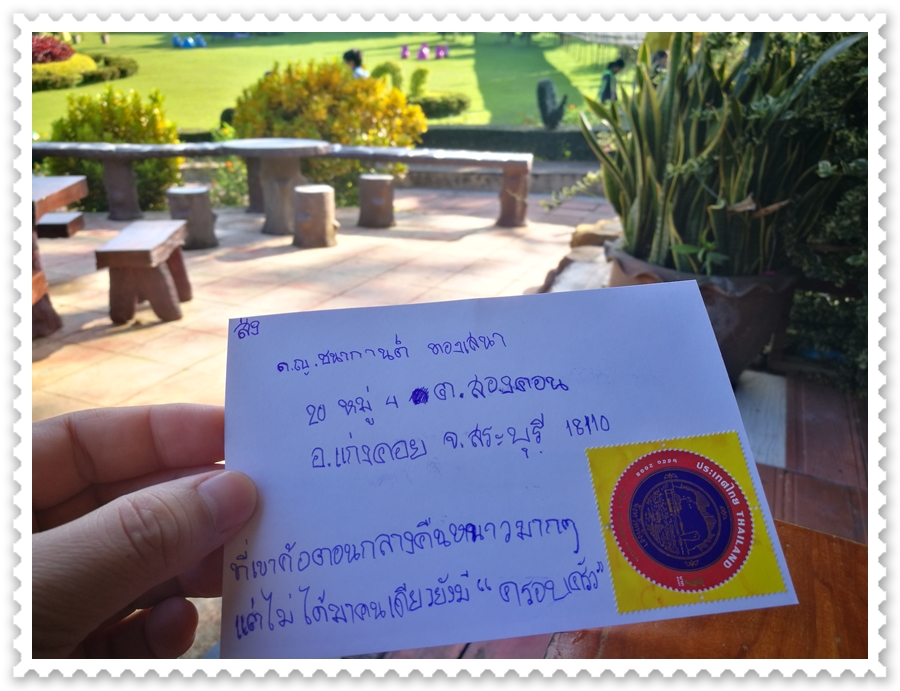 ส่ง
ด.ญ.ชนากานต์ ทองเสนา
20 หมู่ 4 ต.สองคอน
อ.แก่งคอย จ.สระบุรี 18110
ที่เขาค้อตอนกลางคืนหนาวมากๆ
แต่ไม่ได้มาคนเดียวยังมี "ครอบครัว"
ประเทศไทย THAILAND